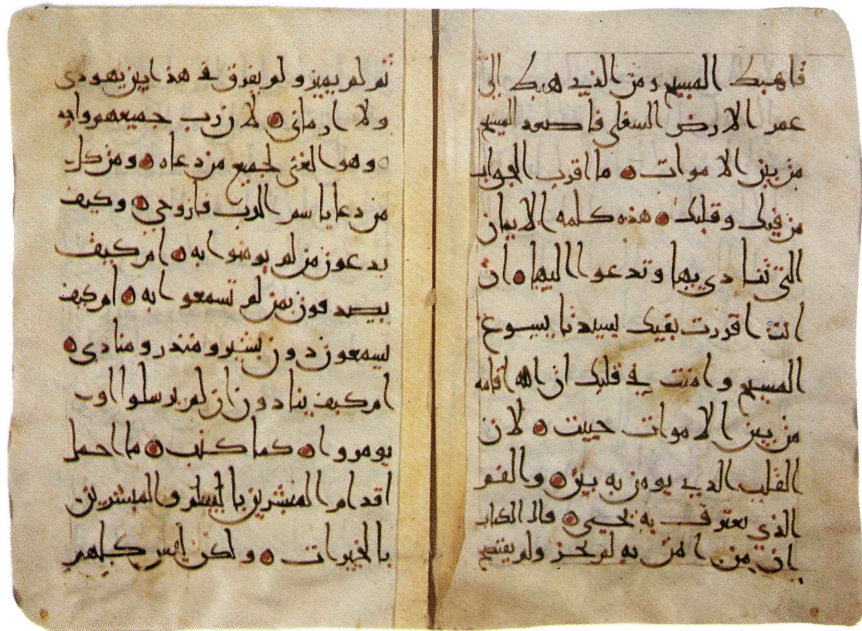 فاهبط المسيح ومن الذي هبط الى
عمر الارض السفلى فاصعد المسيح
من بين الاموات ما اقرب الجواب
من فيك وقلبك هذه كلمه الايمان
التي تنادي بها وتدعوا اليها ان
انت اقررت بفيك بسيدنا يسوع
المسيح وامنت في قلبك ان الله اقامه
من بين الاموات حييت لان
القلب الذي يومن به يبرر والفم
الذي يعترف به يحيى قال الكتاب
ان من امن به لم يخز ولم يفتضح
ثم لم يميز ولم يفرق في هذا بين يهودي
ولا ارماني لان رب جميعهم واحد
وهو الغني لجميع من دعاه ومن كل
من دعا باسم الرب فازوحي وكيف
يدعون من لم يومنوا به ام كيف
يصدقون بمن لم تسمعوا به ام كيف
يسمعون دون بشير ومنذر ومنادي
ام كيف ينادون ان لم يرسلوا او
يومروا كما كتب ما اجمل
اقدام المبشرين بالسلم والمبشرين
بالخيرات ولكن ليس كلهم